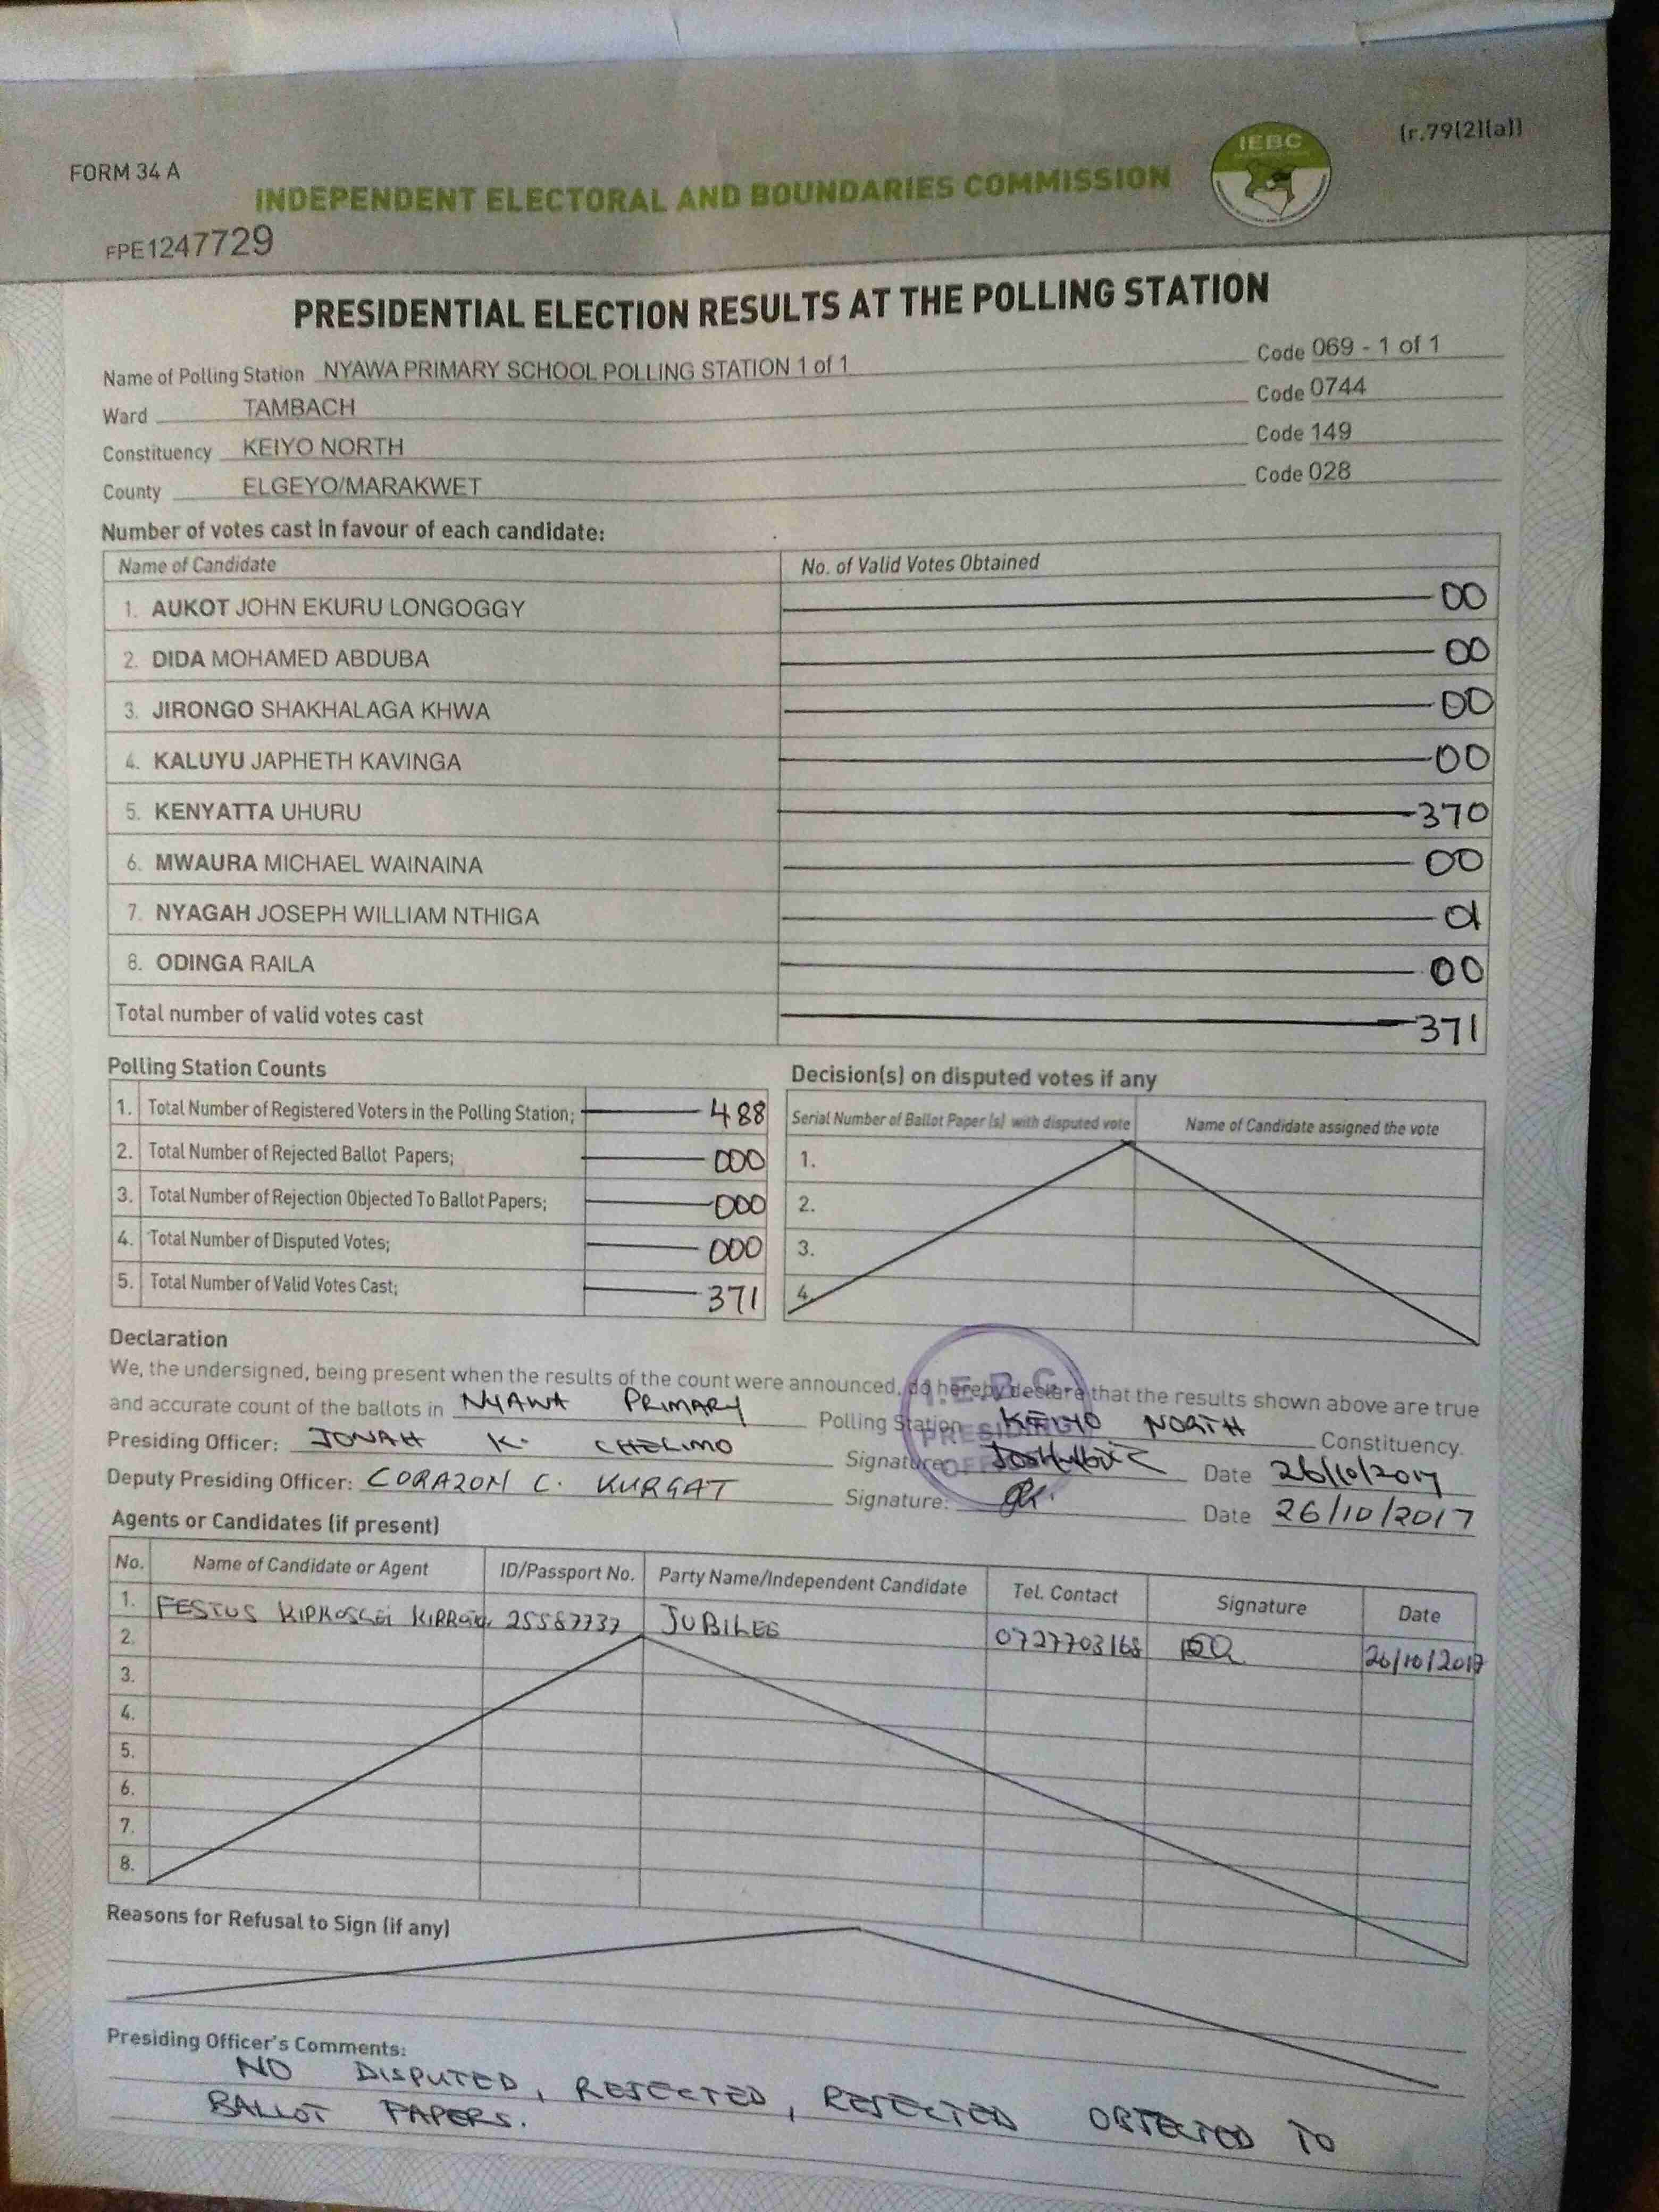 (r.79(2)(a))
IEBC
FORM 34 A
INDEPENDENT ELECTORAL AND BOUNDARIES COMMISSION
FPE1247729
PRESIDENTIAL ELECTION RESULTS AT THE POLLING STATION
Name of Polling Station NYAWA PRIMARY SCHOOL POLLING STATION 1 of 1 Code 069 - 1 of 1
Ward TAMBACH Code 0744
Constituency KEIYO NORTH Code 149
County ELGEYO/MARAKWET Code 028
Number of votes cast in favour of each candidate:
Name of Candidate No. of Valid Votes Obtained
1. AUKOT JOHN EKURU LONGOGGY 00
2. DIDA MOHAMED ABDUBA 00
3. JIRONGO SHAKHALAGA KHWA 00
4. KALUYU JAPHETH KAVINGA 00
5. KENYATTA UHURU 370
6. MWAURA MICHAEL WAINAINA 00
7. NYAGAH JOSEPH WILLIAM NTHIGA 01
8. ODINGA RAILA 00
Total number of valid votes cast 371
Polling Station Counts
1. Total Number of Registered Voters in the Polling Station; 488
2. Total Number of Rejected Ballot Papers; 000
3. Total Number of Rejection Objected To Ballot Papers; 000
4. Total Number of Disputed Votes; 000
5. Total Number of Valid Votes Cast; 371
Decision(s) on disputed votes if any
Serial Number of Ballot Paper (s) with disputed vote Name of Candidate assigned the vote
1.
2.
3.
4.
Declaration
We, the undersigned, being present when the results of the count were announced, do hereby declare that the results shown above are true
and accurate count of the ballots in NYAWA PRIMARY Polling Station KEIYO NORTH Constituency.
Presiding Officer: JONAH K. CHELIMO Signature: Date 26/10/2017
Deputy Presiding Officer: CORAZON C. KURGAT Signature: Date 26/10/2017
I.E.B.C
PRESIDING
OFFICER
Agents or Candidates (if present)
No. Name of Candidate or Agent ID/Passport No. Party Name/Independent Candidate Tel. Contact Signature Date
1. FESTUS KIPKOSGEI 25587737 JUBILEE 0727703168 26/10/2017
2.
3.
4.
5.
6.
7.
8.
Reasons for Refusal to Sign (if any)
Presiding Officer's Comments:
NO DISPUTED, REJECTED, REJECTED OBJECTED TO
BALLOT PAPERS.